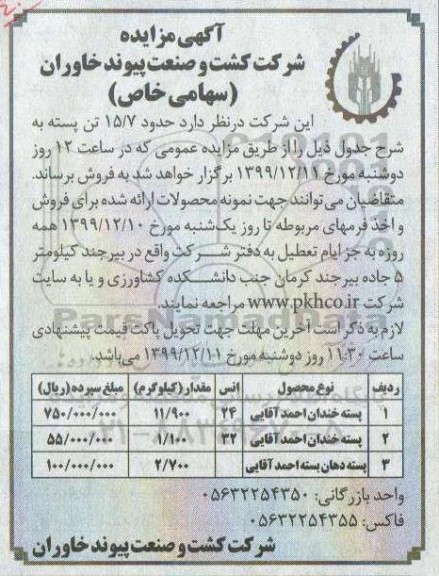 آگهی مزایده
شرکت کشت و صنعت پیوند خاوران
(سهامی خاص)
این شرکت درنظر دارد حدود ۱۵/۷ تن پسته به
شرح جدول ذیل را از طریق مزایده عمومی که در ساعت ۱۲ روز
دوشنبه مورخ ۱۳۹۹/۱۲/۱۱ برگزار خواهد شد به فروش برساند.
متقاضیان می‌توانند جهت نمونه محصولات ارائه شده برای فروش
و اخذ فرمهای مربوطه تا روز یک‌شنبه مورخ ۱۳۹۹/۱۲/۱۰ همه
روزه به جز ایام تعطیل به دفتر شرکت واقع در بیرجند کیلومتر
۵ جاده بیرجند کرمان جنب دانشکده کشاورزی و یا به سایت
شرکت www.pkhco.ir مراجعه نمایند.
لازم به ذکر است آخرین مهلت جهت تحویل پاکت قیمت پیشنهادی
ساعت ۱۱:۳۰ روز دوشنبه مورخ ۱۳۹۹/۱۲/۱۱ می‌باشد.
ردیف نوع محصول انس مقدار (کیلوگرم) مبلغ سپرده (ریال)
۱ پسته خندان احمدآقایی ۲۴ ۱۱/۹۰۰ ۷۵۰/۰۰۰/۰۰۰
۲ پسته خندان احمدآقایی ۳۲ ۱/۱۰۰ ۵۵/۰۰۰/۰۰۰
۳ پسته دهان بسته احمدآقایی ۲/۷۰۰ ۱۰۰/۰۰۰/۰۰۰
واحد بازرگانی: ۰۵۶۳۲۲۵۴۳۵۰
فاکس: ۰۵۶۳۲۲۵۴۳۵۵
شرکت کشت و صنعت پیوند خاوران
ParsNamadData